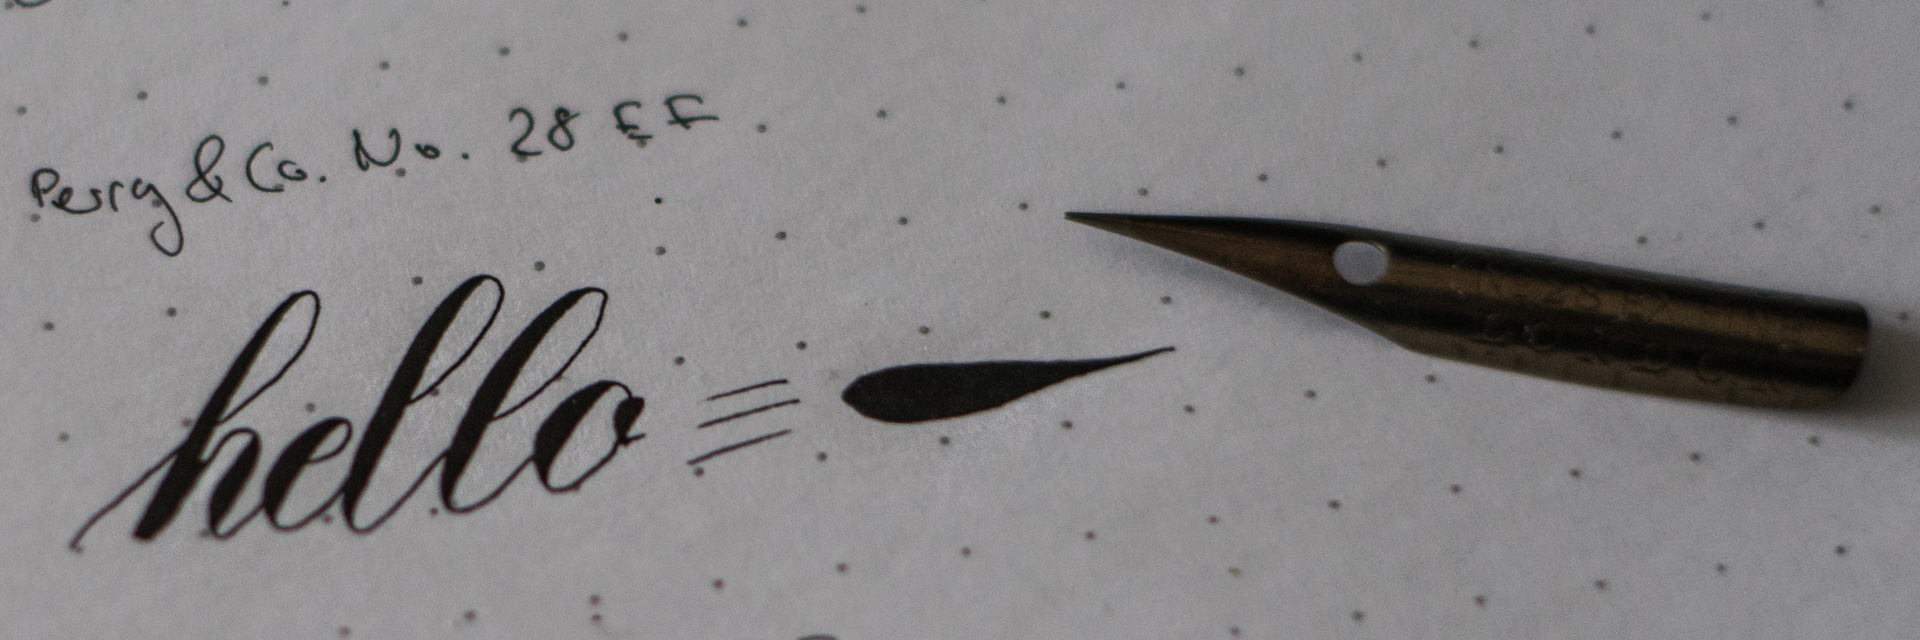 Perry & Co. No. 28 EF
hello